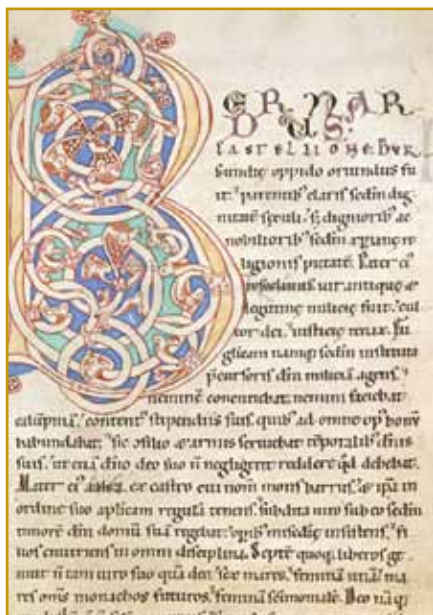 BERNAR
DUS
CASTELLIONE BUR
gundię oppido oriundus fu
it, parentib' claris sedm dig
nitatē sęculi, s; digniorib' ac
nobiliorib' sedm xpianę re
ligionis pietatē. Pater ei'
tescelinus uir antiquę &
legitimę milicię fuit, cul
tor dei, iusticię tenax. Eu
glicam namq; sedm instituta
p̄cursoris dn̄i miliciā agens,
neminē concutiebat, nemini faciebat
calūpniā, content' stipendiis suis, quib' ad omne op' bonū
habundabat. Sic &armis seruiebat tēporalib' dn̄is
suis, ut etiā dn̄o deo suo n̄ negligeret reddere qd debebat.
Mater ei' ex castro cui nom̄ mons barrus, & ipa in
ordine suo aplicam regulā tenens, subdita uiro sub eo sedm
timorē dei domū suā regebat, opib' mise insistens, fi
lios enutriens in omni disciplina. Septē quoq; liberos ge
nuit n̄ tam uiro suo quā deo, sex mares, feminā unā, ma
res om̄s monachos futuros, feminā Deo nāq;